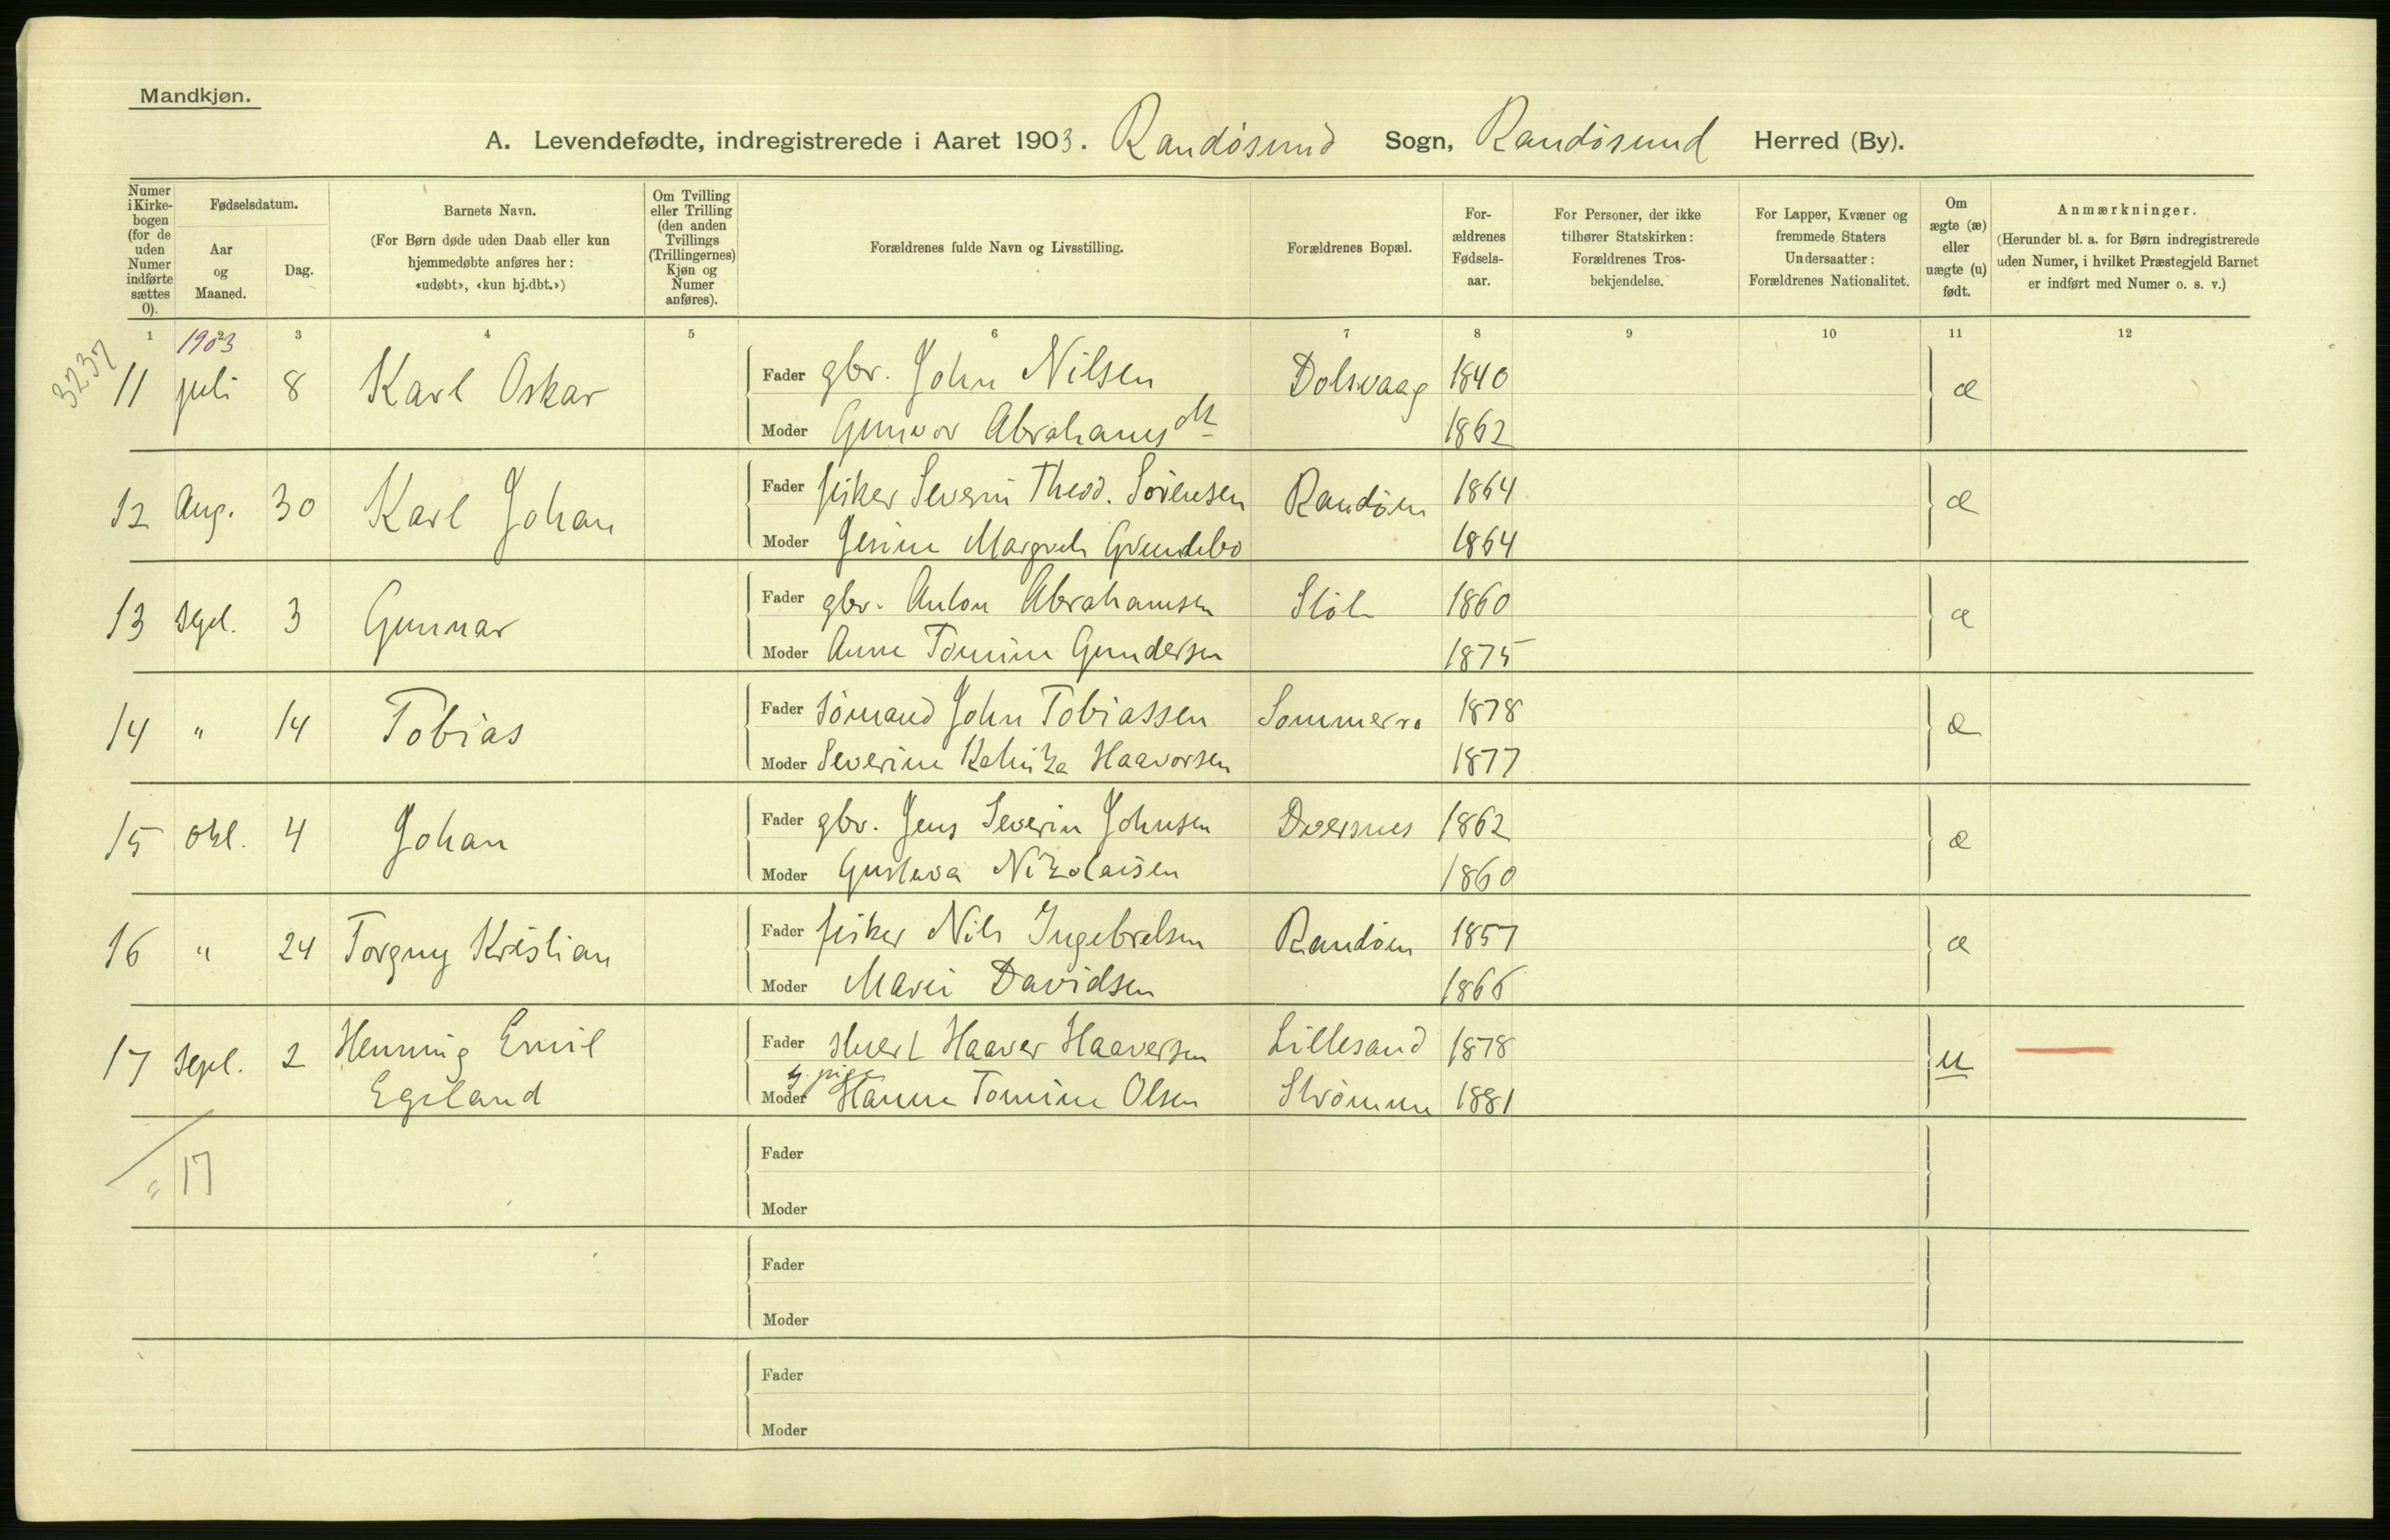 Mandkjøn.
A. Levendefødte, indregistrerede i Aaret 1903. Randøsund Sogn, Randøsund Herred (By).
Numer i Kirkebogen (for de uden Numer indførte sættes 0).
Fødselsdatum.
Aar og Maaned.
Dag.
Barnets Navn.
(For Børn døde uden Daab eller kun hjemmedøbte anføres her: «udøbt», «kun hj.dbt.»)
Om Tvilling eller Trilling (den anden Tvillings (Trillingernes) Kjøn og Numer anføres).
Forældrenes fulde Navn og Livsstilling.
Forældrenes Bopæl.
Forældrenes Fødselsaar.
For Personer, der ikke tilhører Statskirken: Forældrenes Trosbekjendelse.
For Lapper, Kvæner og fremmede Staters Undersaatter: Forældrenes Nationalitet.
Om ægte (æ) eller uægte (u) født.
Anmærkninger.
(Herunder bl. a. for Børn indregistrerede uden Numer, i hvilket Præstegjeld Barnet er indført med Numer o. s. v.)
1 2 3 4 5 6 7 8 9 10 11 12
1903
3237
11 juli 8 Karl Oskar Fader gbr. John Nilsen Dolsvaag 1840 æ
Moder Gunvor Abrahamsdtr 1862
12 Aug. 30 Karl Johan Fader fisker Severin Theod. Sørensen Randøen 1864 æ
Moder Jesine Margreth Grundebo 1864
13 Sept. 3 Gunnar Fader gbr. Anton Abrahamsen Støle 1860 æ
Moder Anne Tomine Gundersen 1875
14 " 14 Tobias Fader Sømand John Tobiassen Sommerro 1878 æ
Moder Severine Kahitza Haavorsen 1877
15 Okt. 4 Johan Fader gbr. Jens Severin Johnsen Dversnes 1862 æ
Moder Gustava Nikolaisen 1860
16 " 24 Torgny Kristian Fader fisker Nils Ingebretsen Randøen 1857 æ
Moder Marie Davidsen 1866
17 Sept. 2 Henning Emil Fader Haaver Haaversen Lillesand 1878 u
Egeland Moder pige Hanne Tomine Olsen Strømme 1881
17
Fader
Moder
Fader
Moder
Fader
Moder